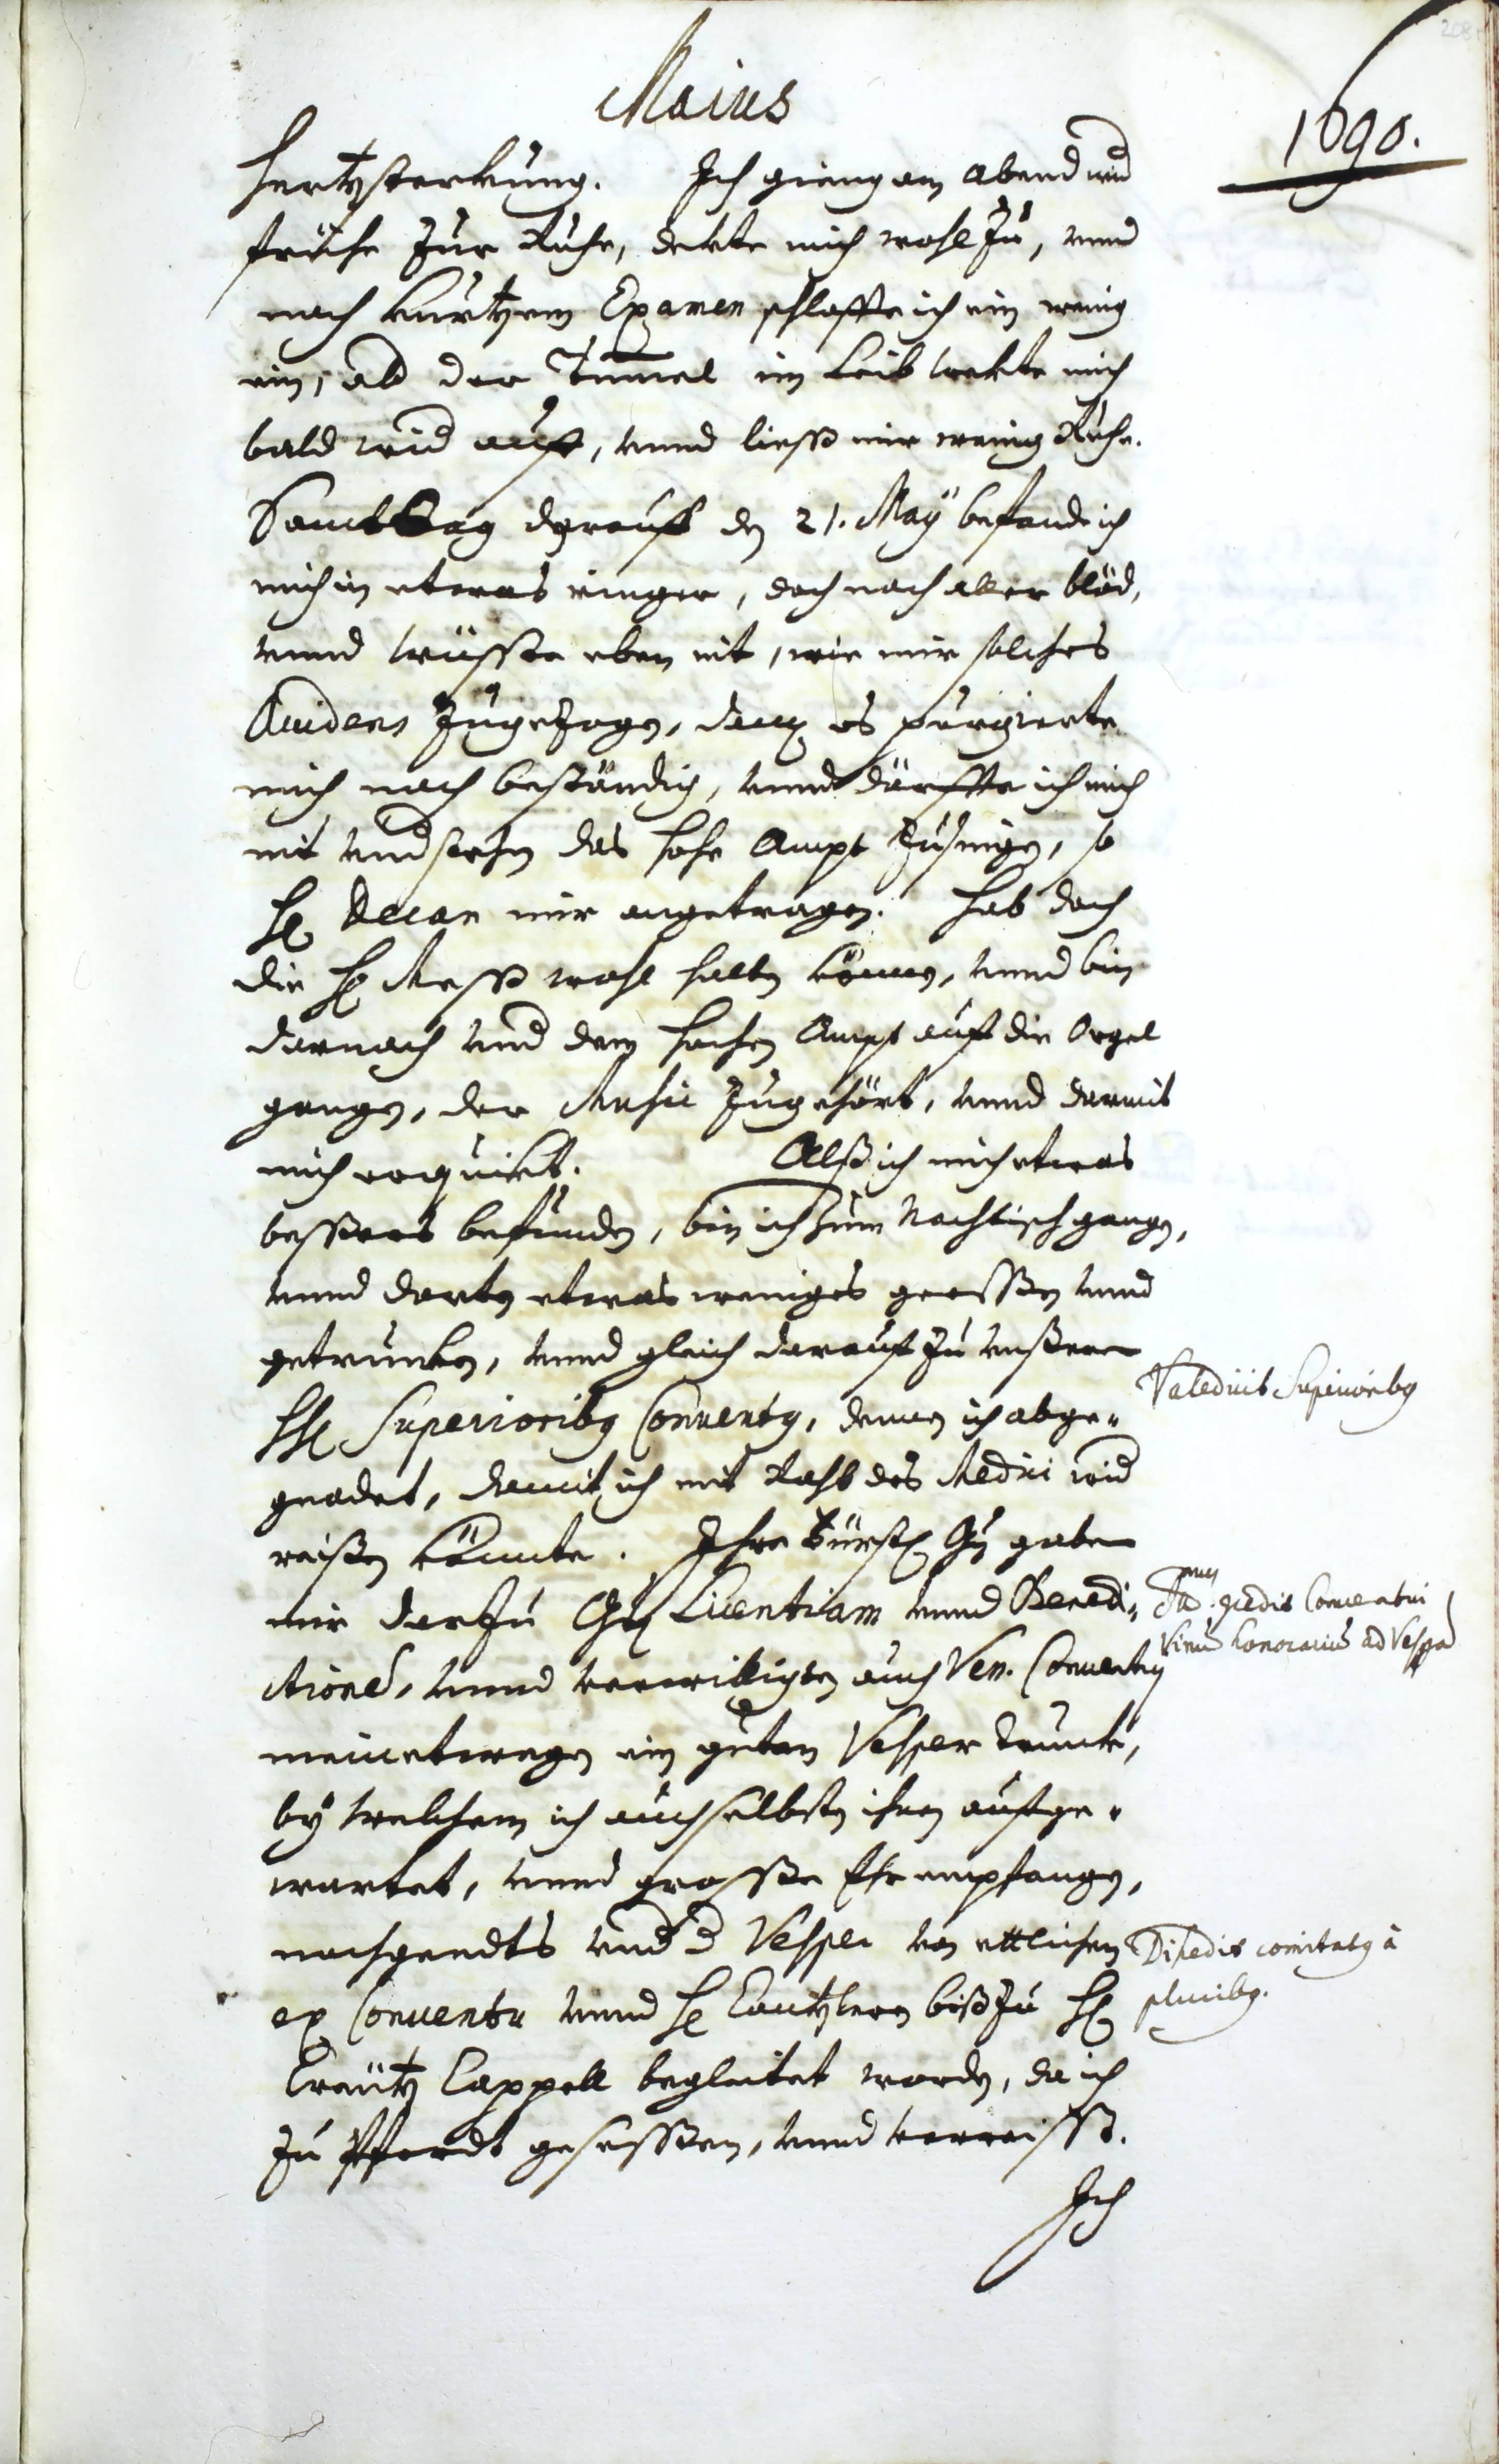 Maius
1690.
Hertzsterkung. Ich gieng am Abend wid
früehe zur Ruhe, dekte mich wohl zu, unnd
nach kurtzem Examen schlaffte ich ein wenig
ein, als der Tumel im Leib wekte mich
bald wid auff, unnd liesß mir wenig Ruhe.
Sambstag darauff den 21. Maÿ befand ich
mich in etwas ringer, doch noch aller blöd,
unnd wüsste eben nit, wie mir solches
Accidens zugezogen, dann es purgierte
mich noch beständig, unnd därffte ich mich
nit undstehn das hohe Ampt zusingen, so
H. Decan mir angetragen. Hab doch
die H. Mesß wohl halten können, unnd bin
darnach und dem hochen Ampt auff die Orgel
gangen, der Music zugehört, unnd darmit
mich erquikt. Alß ich mich etwas
bessers befunden, bin ich zum Nachtisch gangen,
unnd dorten etwas weniges geessen unnd
getrunken, unnd gleich darauff zu unßeren
HH. Superioribg Conventg, denen ich abge„
gnadet, damit ich mit Raht des Medici wid
reißen könnte. Ihre Fürstl. Gn. gaben
mir darzu Gn. Licentiam unnd Benedi„
ctione, unnd verwilligten auch Ven. Conventg
meinetwegen ein guten Vesper Trunk,
bÿ welchem ich auch selbsten ihnen auffge„
wartet, unnd grosse Ehr empfangen,
nachgendts und d Vesper von ettlichen
ex Conventu unnd H. Cantzleren biß zu H.
Creütz Cappell begleitet worden, da ich
zu Pferdt gesessen, unnd verreisst.
Ich
Valedicit Superioribg
Conventui
Vinu honorariu ad Vespa
Discedit comitatg à
pluribg.